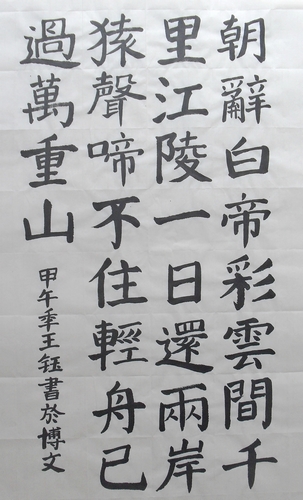 朝辭白帝彩雲間千
里江陵一日還兩岸
猿聲啼不住輕舟已
過萬重山
甲午季王鈺書於博文